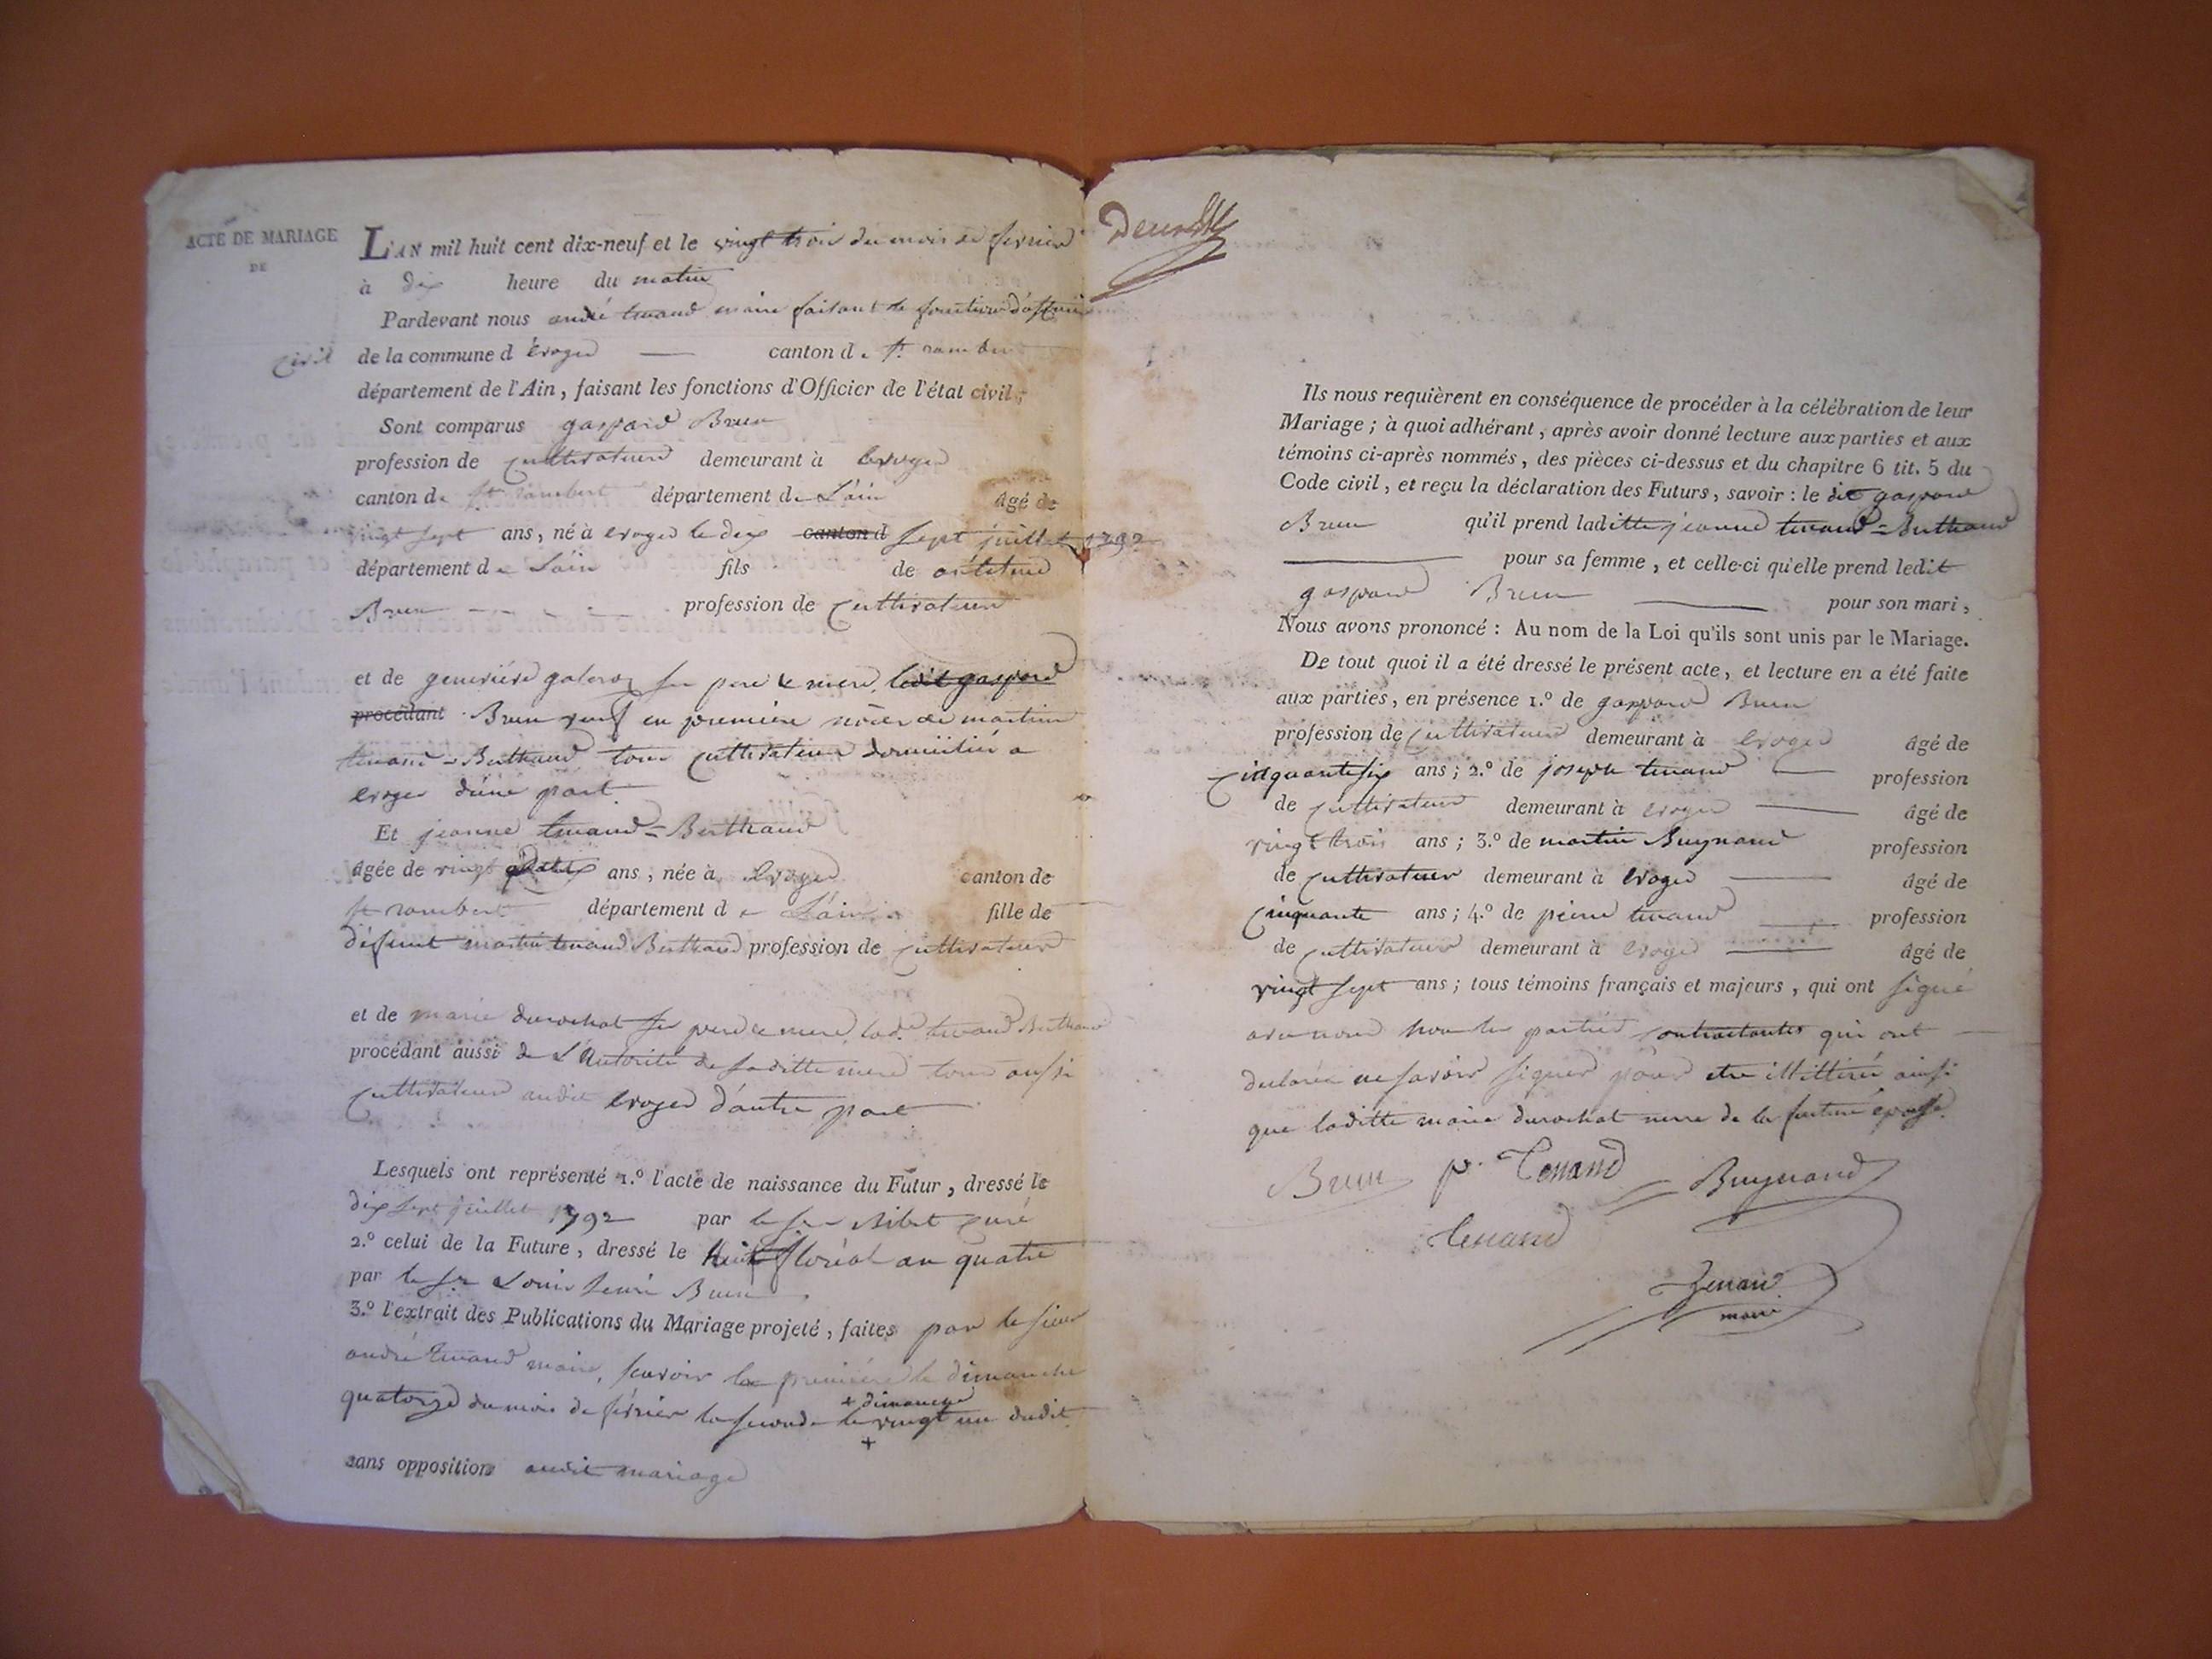 ACTE DE MARIAGE
DE
L'AN mil huit cent dix-neuf et le vingt trois du mois de fevrier
à dix heure du matin
Pardevant nous andré tenand maire faisant les fonctions d'officier
civil de la commune d'évoges canton de St. rambert
département de l'Ain, faisant les fonctions d'Officier de l'état civil;
Sont comparus gaspard Brun
profession de cultivateur demeurant à evoges
canton de St rambert département de L'ain âgé de
vingt sept ans, né à evoges le dix canton d sept juillet 1792
département de L'ain fils de
Brun profession de cultivateur
et de genevieve ses pere & mere, ledit gaspard
procédant Brun veuf en premiere nôces de martine
tenand = Berthand tous cultivateurs domicilié a
evoges d'une part
Et jeanne tenand = Berthand
âgée de vingt ans, née à evoges canton de
st rambert département de L'ain fille de
défunt martin tenand Berthand profession de cultivateur
et de marie durochat ses pere & mere, lad. tenand Berthand
procédant aussi de L'autorité de saditte mere tous aussi
cultivateurs audit evoges d'autre part
Lesquels ont représenté 1.º l'acte de naissance du Futur, dressé le
dix sept juillet 1792 par le sr curé
2.º celui de la Future, dressé le huit floréal an quatre
par le sr Louis henri Brun
3.º l'extrait des Publications du Mariage projeté, faites par le sieur
andré tenand maire, savoir la premiere le dimanche
quatorze du mois de février la seconde le + dimanche vingt un dudit
+
sans opposition audit mariage
Ils nous requièrent en conséquence de procéder à la célébration de leur
Mariage; à quoi adhérant, après avoir donné lecture aux parties et aux
témoins ci-après nommés, des pièces ci-dessus et du chapitre 6 tit. 5 du
Code civil, et reçu la déclaration des Futurs, savoir: le dit gaspard
Brun qu'il prend laditte jeanne tenand = Berthand
pour sa femme, et celle-ci qu'elle prend ledit
gaspard Brun pour son mari,
Nous avons prononcé: Au nom de la Loi qu'ils sont unis par le Mariage.
De tout quoi il a été dressé le présent acte, et lecture en a été faite
aux parties, en présence 1.º de gaspard Brun
profession de cultivateur demeurant à evoges âgé de
cinquante six ans; 2.º de joseph tenand profession
de cultivateur demeurant à evoges âgé de
vingt trois ans; 3.º de martin Buynand profession
de cultivateur demeurant à evoges âgé de
cinquante ans; 4.º de pierre tenand profession
de cultivateur demeurant à evoges âgé de
vingt sept ans; tous témoins français et majeurs, qui ont signé
avec nous non les parties contractantes qui ont
declarée ne savoir signer pour etre illitteré ainsi
que laditte marie durochat mere de la future épouse.
Brun p. Tenand Buynand
tenand
Tenand
maire